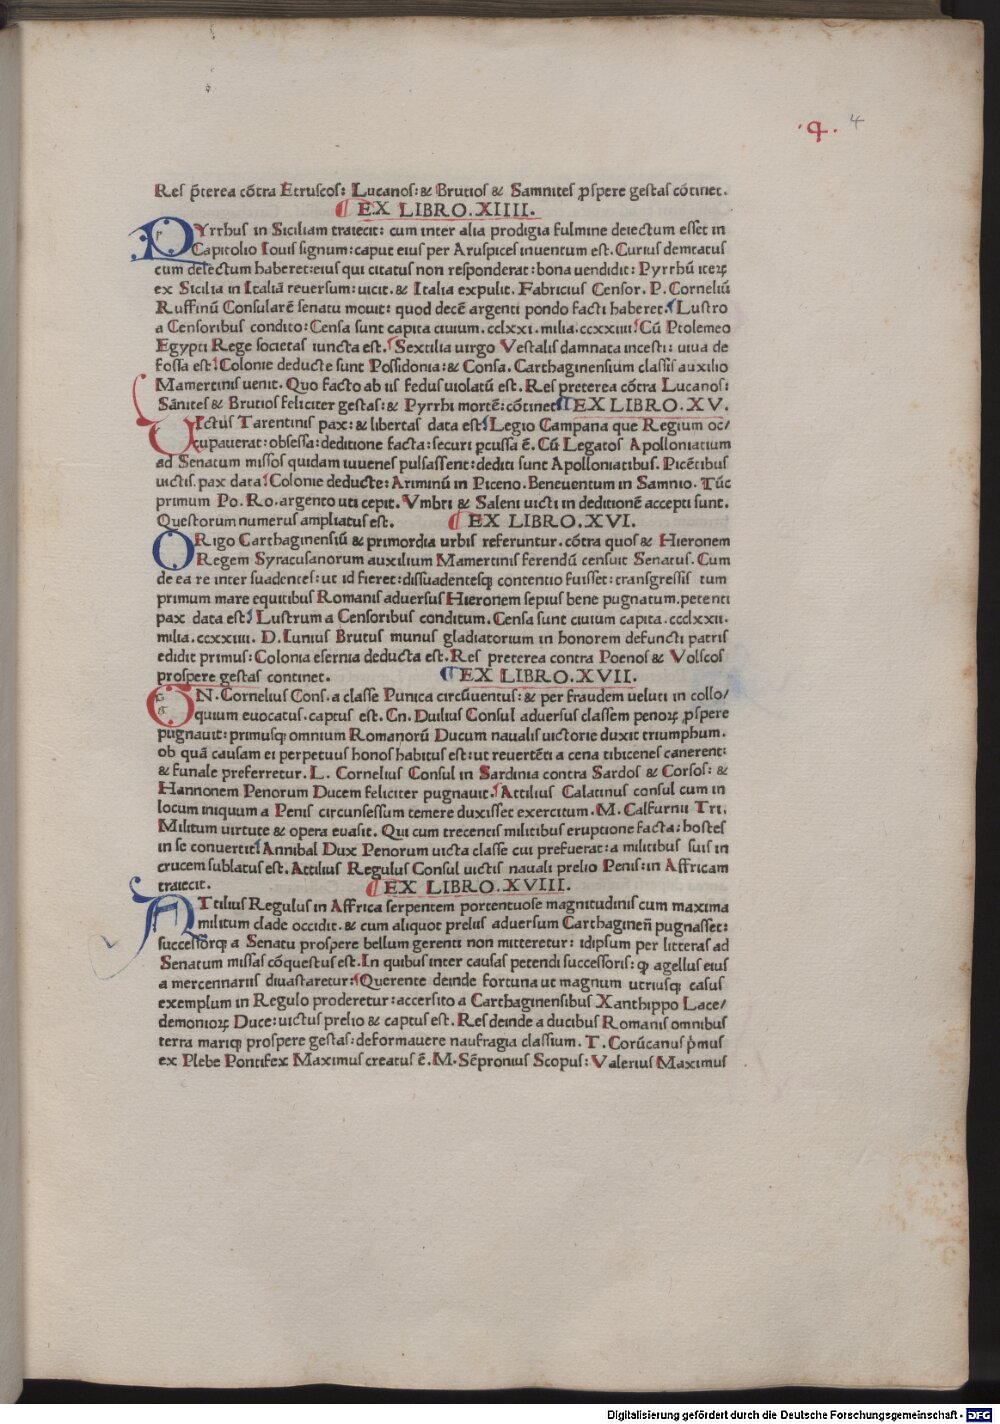 .q. 4
Res p̄terea cōtra Etruscos: Lucanos: & Brutios & Samnites ꝓspere gestas cōtinet.
EX LIBRO. XIIII.
PYrrhus in Siciliam traiecit: cum inter alia prodigia fulmine deiectum esset in
Capitolio Iouis signum: caput eius per Aruspices inuentum est. Curius dentatus
cum delectum haberet: eius qui citatus non responderat: bona uendidit: Pyrrhū iteꝝ
ex Sicilia in Italiā reuersum: uicit. & Italia expulit. Fabricius Censor. P. Corneliū
Ruffinū Consularē senatu mouit: quod decē argenti pondo facti haberet. Lustro
a Censoribus condito: Censa sunt capita ciuium. cclxxi. milia. ccxxiiii: Cū Ptolemeo
Egypti Rege societas iuncta est. Sextilia uirgo Vestalis damnata incesti: uiua de
fossa est: Colonie deducte sunt Possidonia: & Consa. Carthaginensium classis auxilio
Mamertinis uenit. Quo facto ab iis fedus uiolatū est. Res preterea cōtra Lucanos:
Sānites & Brutios feliciter gestas: & Pyrrhi mortē: cōtinet EX LIBRO. XV.
UIctis Tarentinis pax: & libertas data est: Legio Campana que Regium oc/
cupauerat: obsessa: deditione facta: securi ꝑcussa ē. Cū Legatos Apolloniatium
ad Senatum missos quidam iuuenes pulsassent: dediti sunt Apolloniatibus. Picētibus
uictis. pax data: Colonie deducte: Ariminū in Piceno. Beneuentum in Samnio. Tūc
primum Po. Ro. argento uti cepit. Vmbri & Saleni uicti in deditionē accepti sunt.
Questorum numerus ampliatus est. EX LIBRO. XVI.
ORigo Carthaginensiū & primordia urbis referuntur. cōtra quos & Hieronem
Regem Syracusanorum auxilium Mamertinis ferendū censuit Senatus. Cum
de ea re inter suadentes: ut id fieret: dissuadentesqꝫ contentio fuisset: transgressis tum
primum mare equitibus Romanis aduersus Hieronem sepius bene pugnatum. petenti
pax data est: Lustrum a Censoribus conditum. Censa sunt ciuium capita. ccclxxii.
milia. ccxxiiii. D. Iunius Brutus munus gladiatorium in honorem defuncti patris
edidit primus: Colonia esernia deducta est. Res preterea contra Poenos & Volscos
prospere gestas continet. EX LIBRO. XVII.
CN. Cornelius Cons. a classe Punica circūuentus: & per fraudem ueluti in collo/
quium euocatus. captus est. Cn. Duilius Consul aduersus classem penoꝝ ꝓspere
pugnauit: primusqꝫ omnium Romanorū Ducum naualis uictorie duxit triumphum.
ob quā causam ei perpetuus honos habitus est: ut reuertēti a cena tibicenes canerent:
& funale preferretur. L. Cornelius Consul in Sardinia contra Sardos & Corsos: &
Hannonem Penorum Ducem feliciter pugnauit. Attilius Calatinus consul cum in
locum iniquum a Penis circunsessum temere duxisset exercitum. M. Calfurnii Tri.
Militum uirtute & opera euasit. Qui cum trecentis militibus eruptione facta: hostes
in se conuertit: Annibal Dux Penorum uicta classe cui prefuerat: a militibus suis in
crucem sublatus est. Attilius Regulus Consul uictis nauali prelio Penis: in Affricam
traiecit. EX LIBRO. XVIII.
ATtilius Regulus in Affrica serpentem portentuose magnitudinis cum maxima
militum clade occidit. & cum aliquot preliis aduersum Carthagineñ pugnasset:
successorqꝫ a Senatu prospere bellum gerenti non mitteretur: idipsum per litteras ad
Senatum missas cōquestus est. In quibus inter causas petendi successoris: ꝙ agellus eius
a mercennariis diuastaretur: Querente deinde fortuna ut magnum utriusqꝫ casus
exemplum in Regulo proderetur: accersito a Carthaginensibus Xanthippo Lace/
demonioꝝ Duce: uictus prelio & captus est. Res deinde a ducibus Romanis omnibus
terra mariqꝫ prospere gestas: deformauere naufragia classium. T. Corūcanus p̄mus
ex Plebe Pontifex Maximus creatus ē. M. Sēpronius Scopus: Valerius Maximus
Digitalisierung gefördert durch die Deutsche Forschungsgemeinschaft - DFG